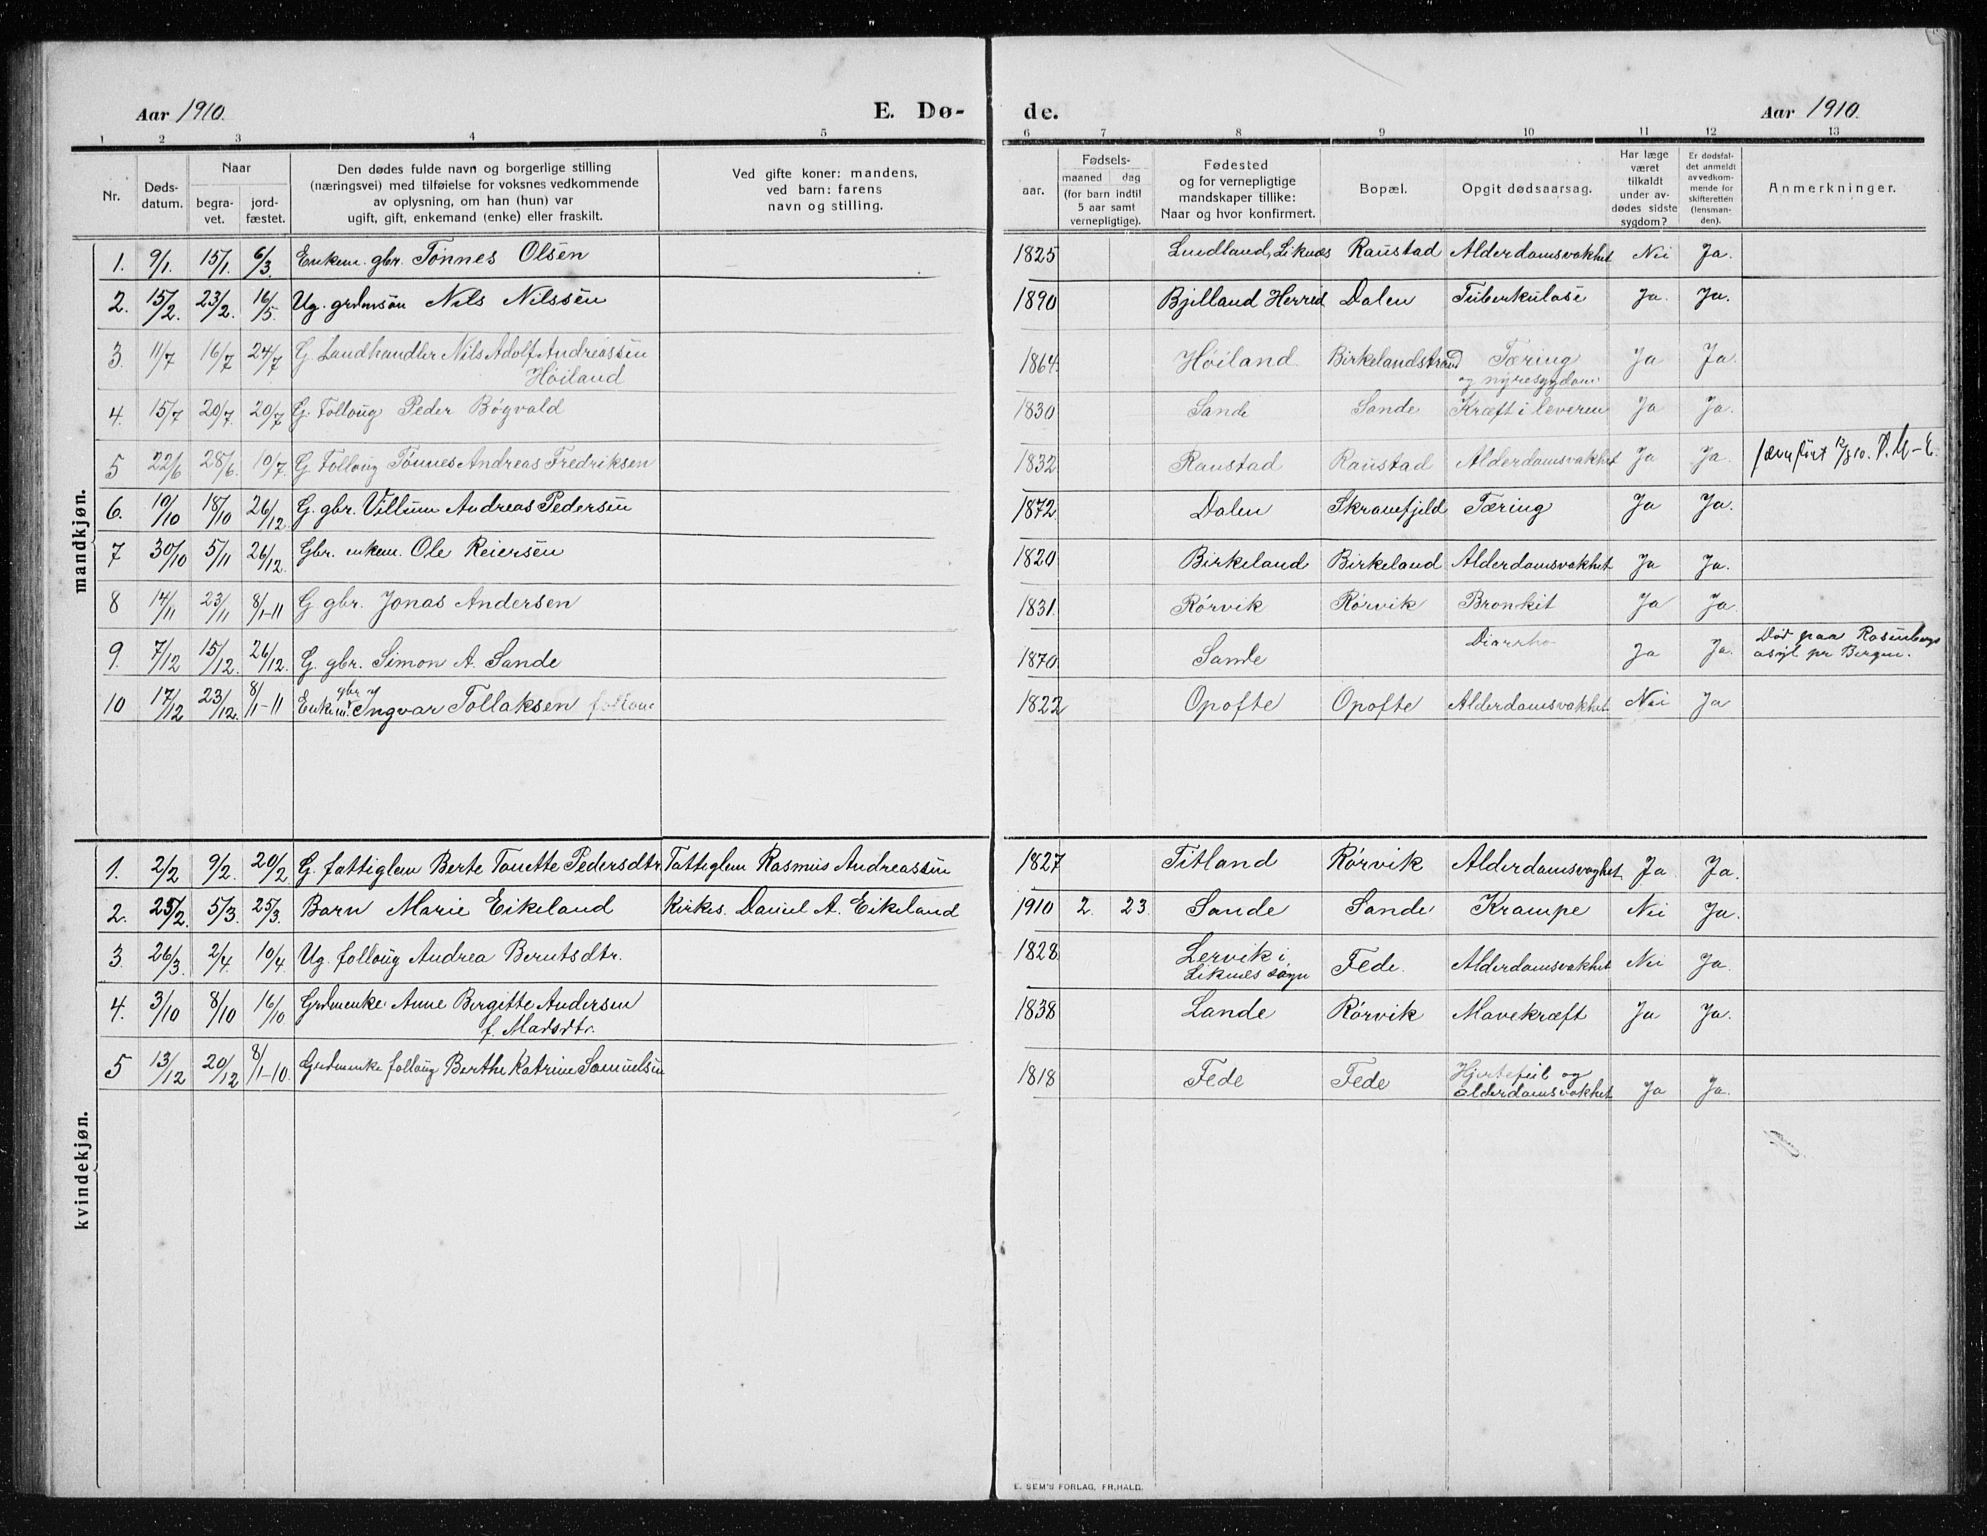 Aar 1910. E. Dø- de. Aar 1910.
1 2 3 4 5 6 7 8 9 10 11 12 13
Nr. Døds-datum. Naar begra-vet. jord-fæstet. Den dødes fulde navn og borgerlige stilling (næringsvei) med tilføielse for voksnes vedkommende av oplysning, om han (hun) var ugift, gift, enkemand (enke) eller fraskilt. Ved gifte koner: mandens, ved barn: farens navn og stilling. aar. Fødsels- maaned dag (for barn indtil 5 aar samt vernepligtige). Fødested og for vernepligtige mandskaper tillike: Naar og hvor konfirmert. Bopæl. Opgit dødsaarsag. Har læge været tilkaldt under av-dødes sidste sygdom? Er dødsfal-det anmeldt av vedkom-mende for skifteretten (lensman-den). Anmerkninger.
mandkjøn.
1. 9/1. 15/1. 6/3. Enkem. gbr. Tønnes Olsen 1825 Lindland, Liknes Raustad Alderdomsvakhet Nei Ja.
2. 15/2. 23/2. 16/5. Ug. grdmsøn Nils Nilssen 1890 Bjelland Herred Dalen Tuberkulose Ja. Ja.
3 11/7 16/7 24/7 G. Landhandler Nils Adolf Andreassen Høiland 1864 Høiland Birkelandstrand Tæring og nyresygdom Ja Ja
4. 15/7 20/7. 20/7 G. Folloug Peder Bøgvald 1830 Sande Sande Kræft i leveren Ja Ja.
5 22/6 28/6. 10/7. G. Folloug Tønnes Andreas Fredriksen 1832 Raustad Raustad Alderdomsvakhet Ja Ja.
6. 10/10 18/10 26/12. G. gbr. Villum Andreas Pedersen 1872 Dalen Skranefjeld Tæring Ja Ja.
7 30/10 5/11 26/12. Gbr. enkem. Ole Reiersen 1820 Birkeland Birkeland Alderdomsvakhet Ja Ja.
8 14/11 23/11 8/1-11 G gbr. Jonas Andersen 1831. Rørvik Rørvik Bronkit Ja Ja.
9. 7/12 15/12. 26/12. G. gbr. Simon A. Sande 1870 Sande Diarrho Ja Ja. Død paa Rosenbergs asyl pr Bergen.
10 17/12 23/12. 8/1-11 Enkem. gbr Ingvar Tollaksen folloug 1822 Opofte Opofte Alderdomsvakhet Nei Ja
kvindekjøn.
1. 2/2 9/2. 20/2 G. fattiglem Berte Tonette Pedersdtr. Fattiglem Rasmus Andreassen 1827 Titland Rørvik Alderdomsvaghet Ja Ja.
2. 25/2. 5/3. 25/3. Barn Marie Eikeland Kirkes. Daniel A. Eikeland 1910 2. 23. Sande Sande Krampe Nei Ja.
3. 26/3. 2/4 10/4 Ug. folloug Andrea Berntsdtr. 1828 Lervik i Liknes sogn Fede. Alderdomsvakhet Nei Ja.
4. 3/10 8/10 16/10 Grdmenke Anne Birgitte Andersen f. Madsdtr. 1838 Lande Rørvik Mavekræft Ja Ja.
5 13/12 20/12 8/1-10. Grdmenke folloug Berthe Katrine Samuelsen 1818 Fede Fede Hjertefeil og alderdomsvakhet Ja Ja.
E. SEM'S FORLAG, FR.HALD.